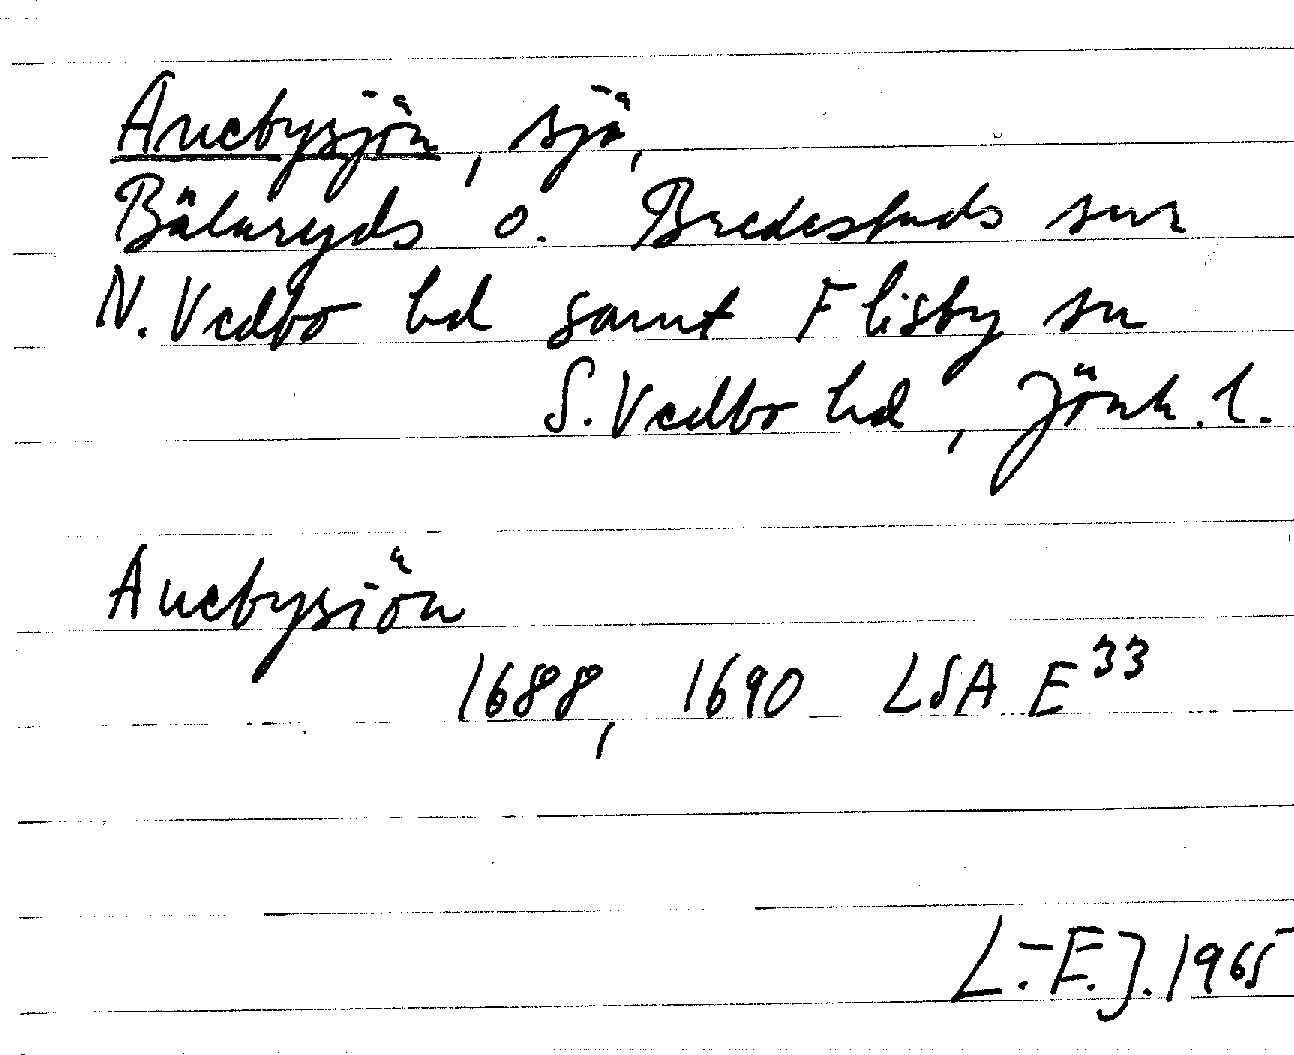 Anebysjön, sjö,
Bälaryds o. Bredestads snr
N. Vedbo hd samt Flisby sn
S. Vedbo hd, Jönk. l.
Anebysiön
1688, 1690 LSA E33
L.-E. J. 1965